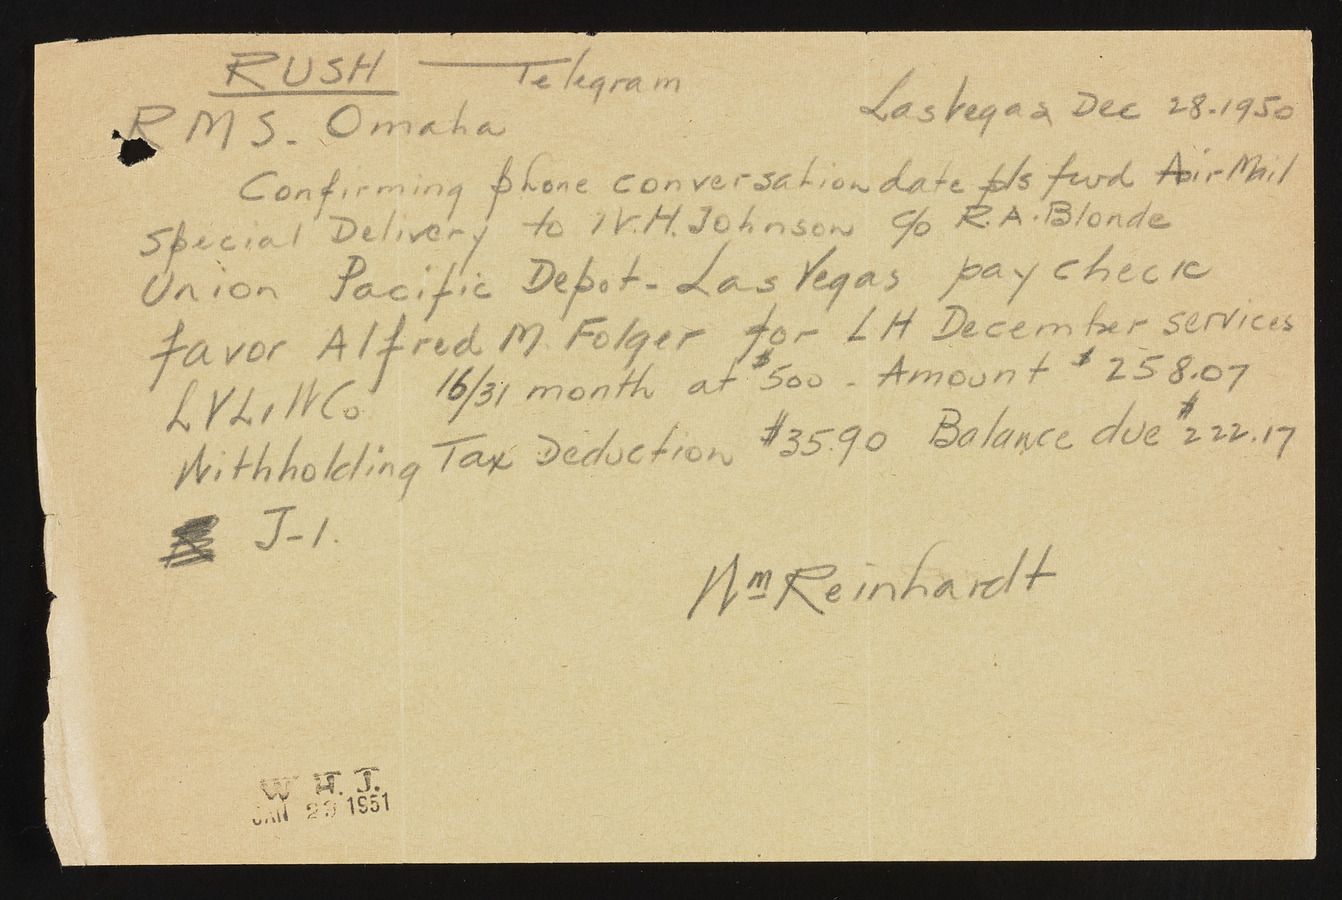 RUSH — Telegram
Las Vegas Dec 28-1950
R M S - Omaha
Confirming phone conversation date pls fwd Air Mail
Special Delivery to W.H. Johnson c/o R.A. Blonde
Union Pacific Depot - Las Vegas pay check
favor Alfred M. Folger for LH December services
LVL&WCo 16/31 month at $500 - Amount $258.07
Withholding Tax Deduction $35.90 Balance due $222.17
J-1.
Wm Reinhardt
W H. J.
JAN 1951